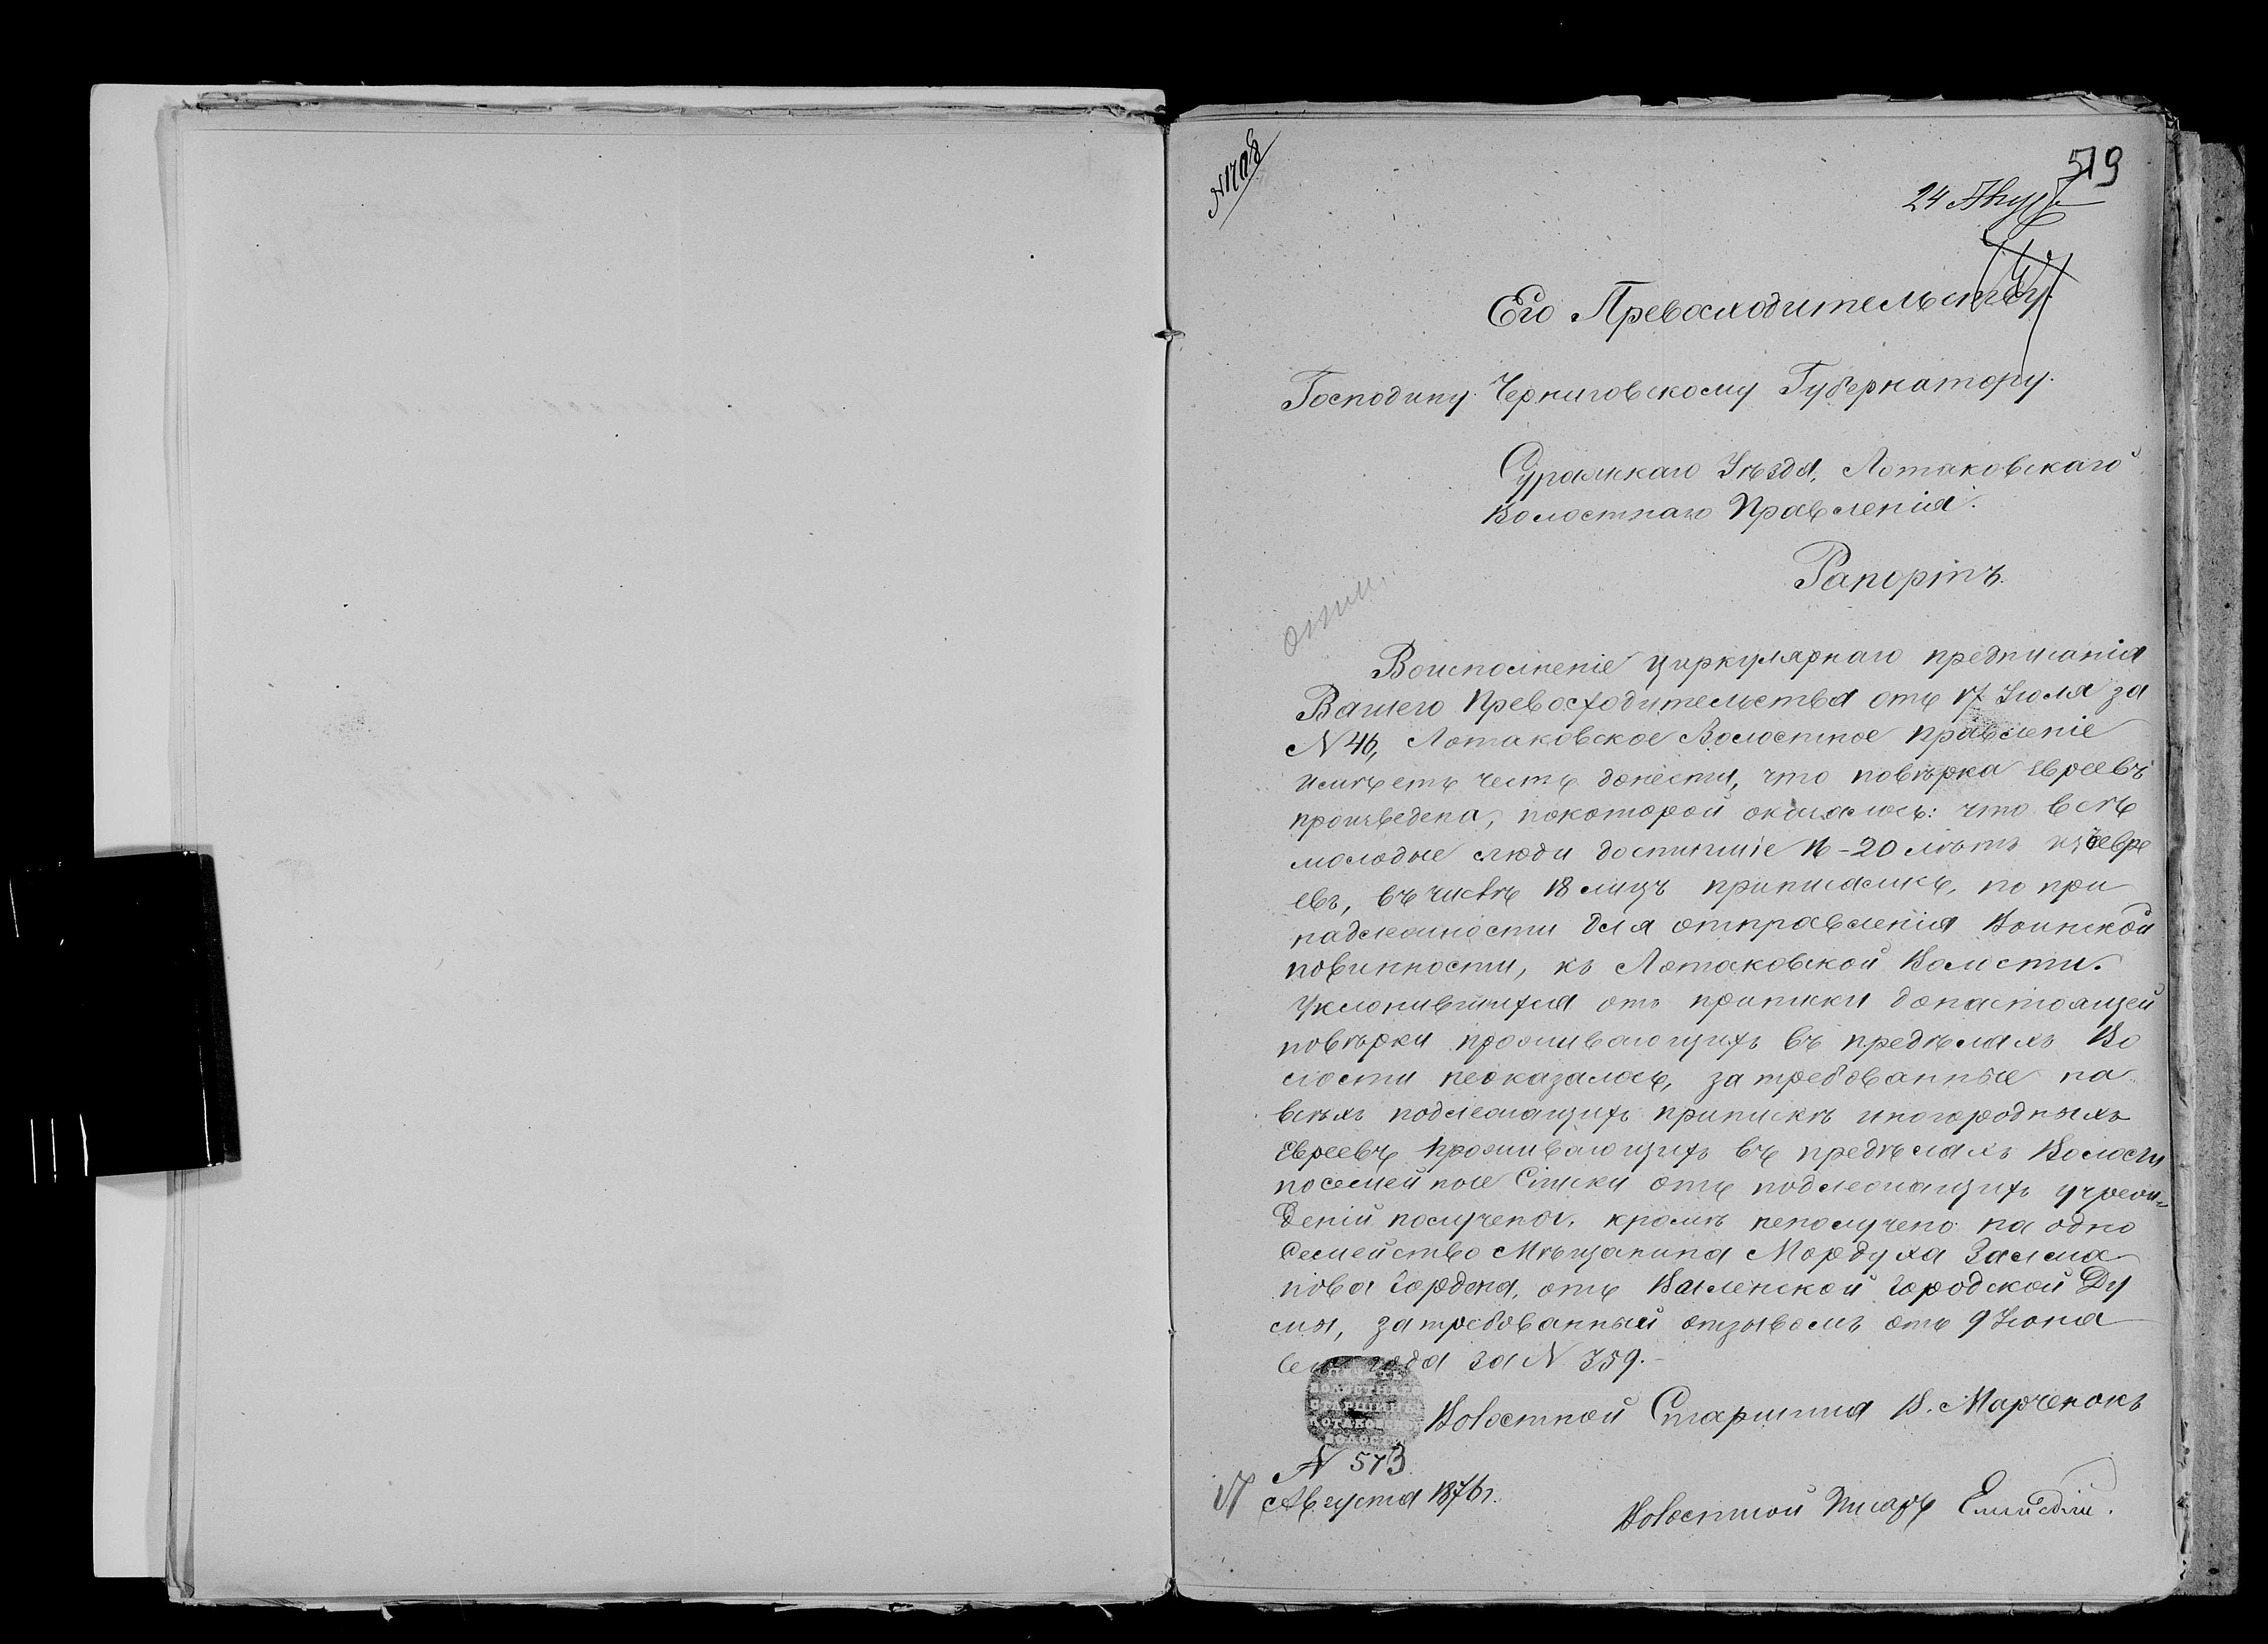 519
24 Авг
Его Превосходительству.
Господину Черниговскому Губернатору.
Суражскаго Уѣзда, Лотаковскаго
Волостнаго Правленія.
Рапортъ.
Воисполненіе циркулярнаго предписанія
Вашего Превосходительства отъ 17 Іюля за
N 46, Лотаковское Волостное Правленіе
имѣетъ честь донести, что повѣрка Евреевъ
произведена, покоторой оказалось: что всѣ
молодые люди достигшіе 16-20 лѣтъ изъ евре
евъ, въ числѣ 18 лицъ приписались, по при
надлежности для отправленія Воинской
повинности, къ Лотаковской Волости.
Уклонившихся отъ приписки донастоящей
повѣрки проживающихъ въ предѣлахъ Во
лости неоказалось, затребованные на
всѣхъ подлежащихъ припискѣ иногородныхъ
Евреевъ проживающихъ въ предѣлахъ Волости
посемейные Списки отъ подлежащихъ учреж=
деній получены, кромѣ неполучено на одно
Семейство Мѣщанина Мордуха Залма
нова Гордона, отъ Виленской Городской Ду
мы, затребованный отзывомъ отъ 9 Іюня
сего года за N 359.-
Волостной Старшина В. Марченокъ
N 573
17 Августа 1876 г.
Волостной Писарь